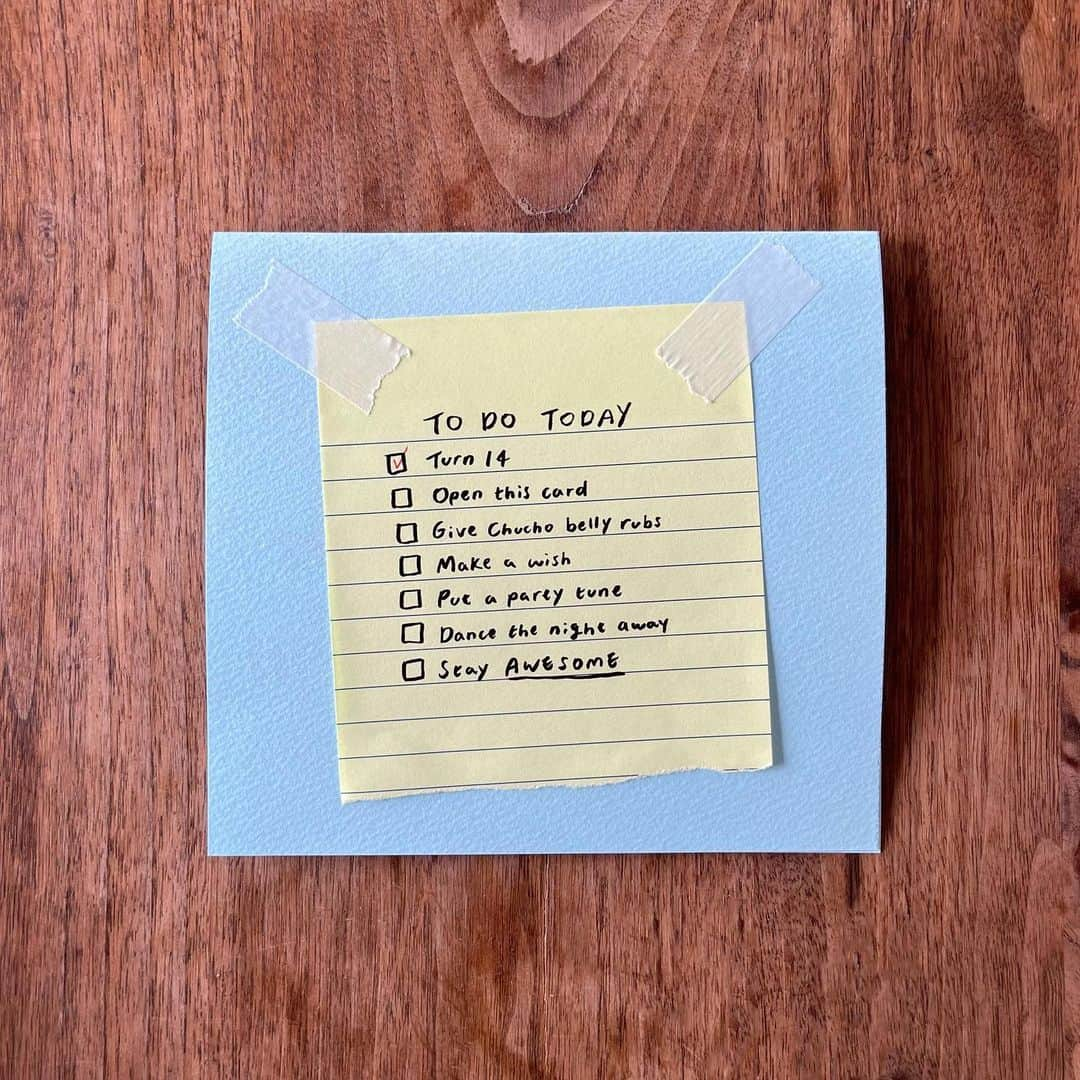 TO DO TODAY
Turn 14
Open this card
Give Chucho belly rubs
Make a wish
Put a party tune
Dance the night away
Stay AWESOME